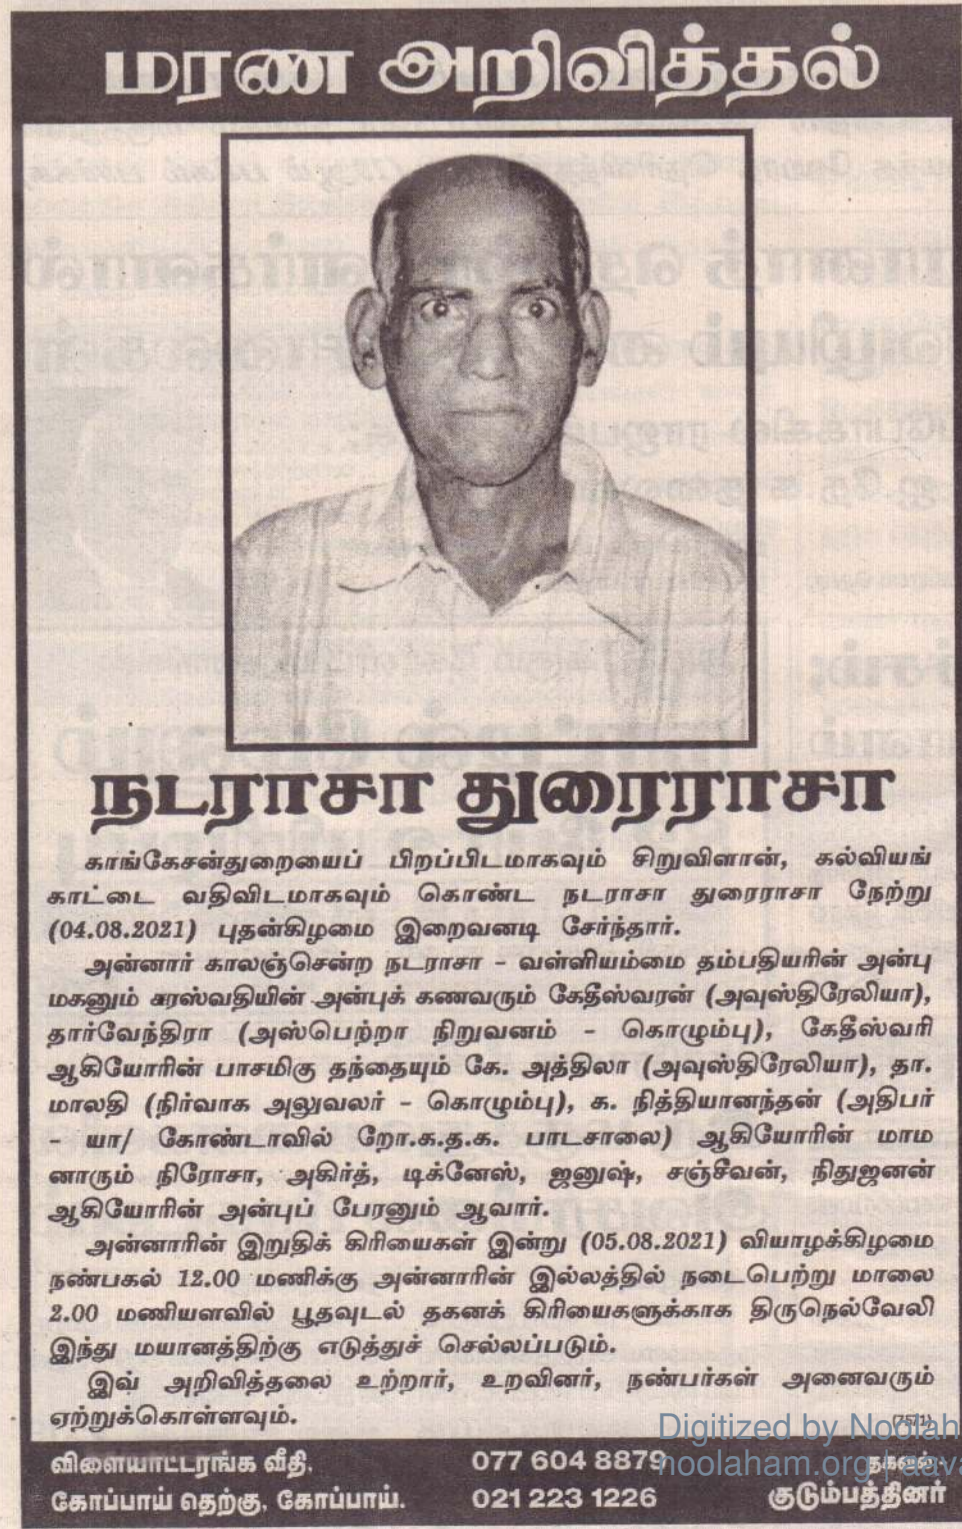 மரண அறிவித்தல்
நடராசா துரைராசா
காங்கேசன்துறையைப் பிறப்பிடமாகவும் சிறுவிளான், கல்வியங்
காட்டை வதிவிடமாகவும் கொண்ட நடராசா துரைராசா நேற்று
(04.08.2021) புதன்கிழமை இறைவனடி சேர்ந்தார்.
அன்னார் காலஞ்சென்ற நடராசா – வள்ளியம்மை தம்பதியரின் அன்பு
மகனும் சரஸ்வதியின் அன்புக் கணவரும் கேதீஸ்வரன் (அவுஸ்திரேலியா),
தார்வேந்திரா (அஸ்பெற்றா நிறுவனம் – கொழும்பு), கேதீஸ்வரி
ஆகியோரின் பாசமிகு தந்தையும் கே. அத்திலா (அவுஸ்திரேலியா), தா.
மாலதி (நிர்வாக அலுவலர் – கொழும்பு), க. நித்தியானந்தன் (அதிபர்
– யா/ கோண்டாவில் றோ.க.த.க. பாடசாலை) ஆகியோரின் மாம
னாரும் நிரோசா, அகிர்த், டிக்னேஸ், ஜனுஷ், சஞ்சீவன், நிதுஜனன்
ஆகியோரின் அன்புப் பேரனும் ஆவார்.
அன்னாரின் இறுதிக் கிரியைகள் இன்று (05.08.2021) வியாழக்கிழமை
நண்பகல் 12.00 மணிக்கு அன்னாரின் இல்லத்தில் நடைபெற்று மாலை
2.00 மணியளவில் பூதவுடல் தகனக் கிரியைகளுக்காக திருநெல்வேலி
இந்து மயானத்திற்கு எடுத்துச் செல்லப்படும்.
இவ் அறிவித்தலை உற்றார், உறவினர், நண்பர்கள் அனைவரும்
ஏற்றுக்கொள்ளவும்.
(75/1)
Digitized by Noolah
noolaham.org | aava
விளையாட்டரங்க வீதி, 077 604 8879 தகவல்:-
கோப்பாய் தெற்கு, கோப்பாய். 021 223 1226 குடும்பத்தினர்